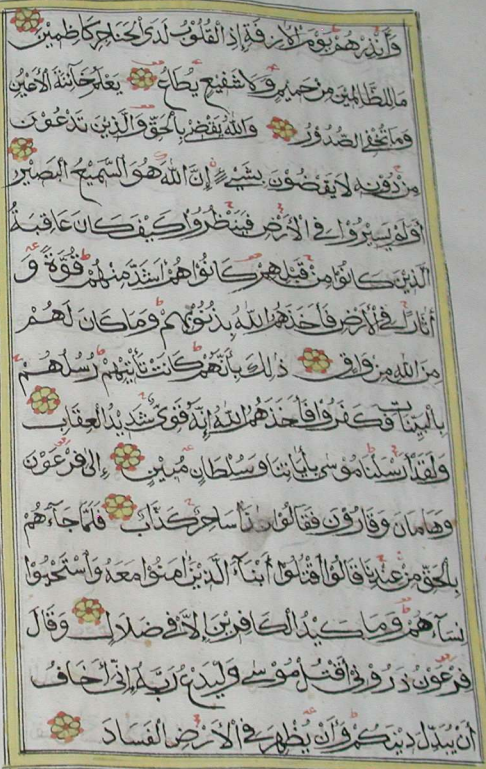 وَأَنذِرْهُمْ يَوْمَ الْأَزِفَةِ إِذِ الْقُلُوبُ لَدَى الْحَنَاجِرِ كَاظِمِينَ
مَا لِلظَّالِمِينَ مِنْ حَمِيمٍ وَلَا شَفِيعٍ يُطَاعُ يَعْلَمُ خَائِنَةَ الْأَعْيُنِ
وَمَا تُخْفِي الصُّدُورُ وَاللَّهُ يَقْضِي بِالْحَقِّ وَالَّذِينَ تَدْعُونَ
مِنْ دُونِهِ لَا يَقْضُونَ بِشَيْءٍ إِنَّ اللَّهَ هُوَ السَّمِيعُ الْبَصِيرُ
أَوَلَمْ يَسِيرُوا فِي الْأَرْضِ فَيَنْظُرُوا كَيْفَ كَانَ عَاقِبَةُ
الَّذِينَ كَانُوا مِنْ قَبْلِهِمْ كَانُوا هُمْ أَشَدَّ مِنْهُمْ قُوَّةً وَ
آثَارًا فِي الْأَرْضِ فَأَخَذَهُمُ اللَّهُ بِذُنُوبِهِمْ وَمَا كَانَ لَهُمْ
مِنَ اللَّهِ مِنْ وَاقٍ ذَلِكَ بِأَنَّهُمْ كَانَتْ تَأْتِيهِمْ رُسُلُهُمْ
بِالْبَيِّنَاتِ فَكَفَرُوا فَأَخَذَهُمُ اللَّهُ إِنَّهُ قَوِيٌّ شَدِيدُ الْعِقَابِ
وَلَقَدْ أَرْسَلْنَا مُوسَى بِآيَاتِنَا وَسُلْطَانٍ مُبِينٍ إِلَى فِرْعَوْنَ
وَهَامَانَ وَقَارُونَ فَقَالُوا سَاحِرٌ كَذَّابٌ فَلَمَّا جَاءَهُمْ
بِالْحَقِّ مِنْ عِنْدِنَا قَالُوا اقْتُلُوا أَبْنَاءَ الَّذِينَ آمَنُوا مَعَهُ وَاسْتَحْيُوا
نِسَاءَهُمْ وَمَا كَيْدُ الْكَافِرِينَ إِلَّا فِي ضَلَالٍ وَقَالَ
فِرْعَوْنُ ذَرُونِي أَقْتُلْ مُوسَى وَلْيَدْعُ رَبَّهُ إِنِّي أَخَافُ
أَنْ يُبَدِّلَ دِينَكُمْ وَأَنْ يُظْهِرَ فِي الْأَرْضِ الْفَسَادَ